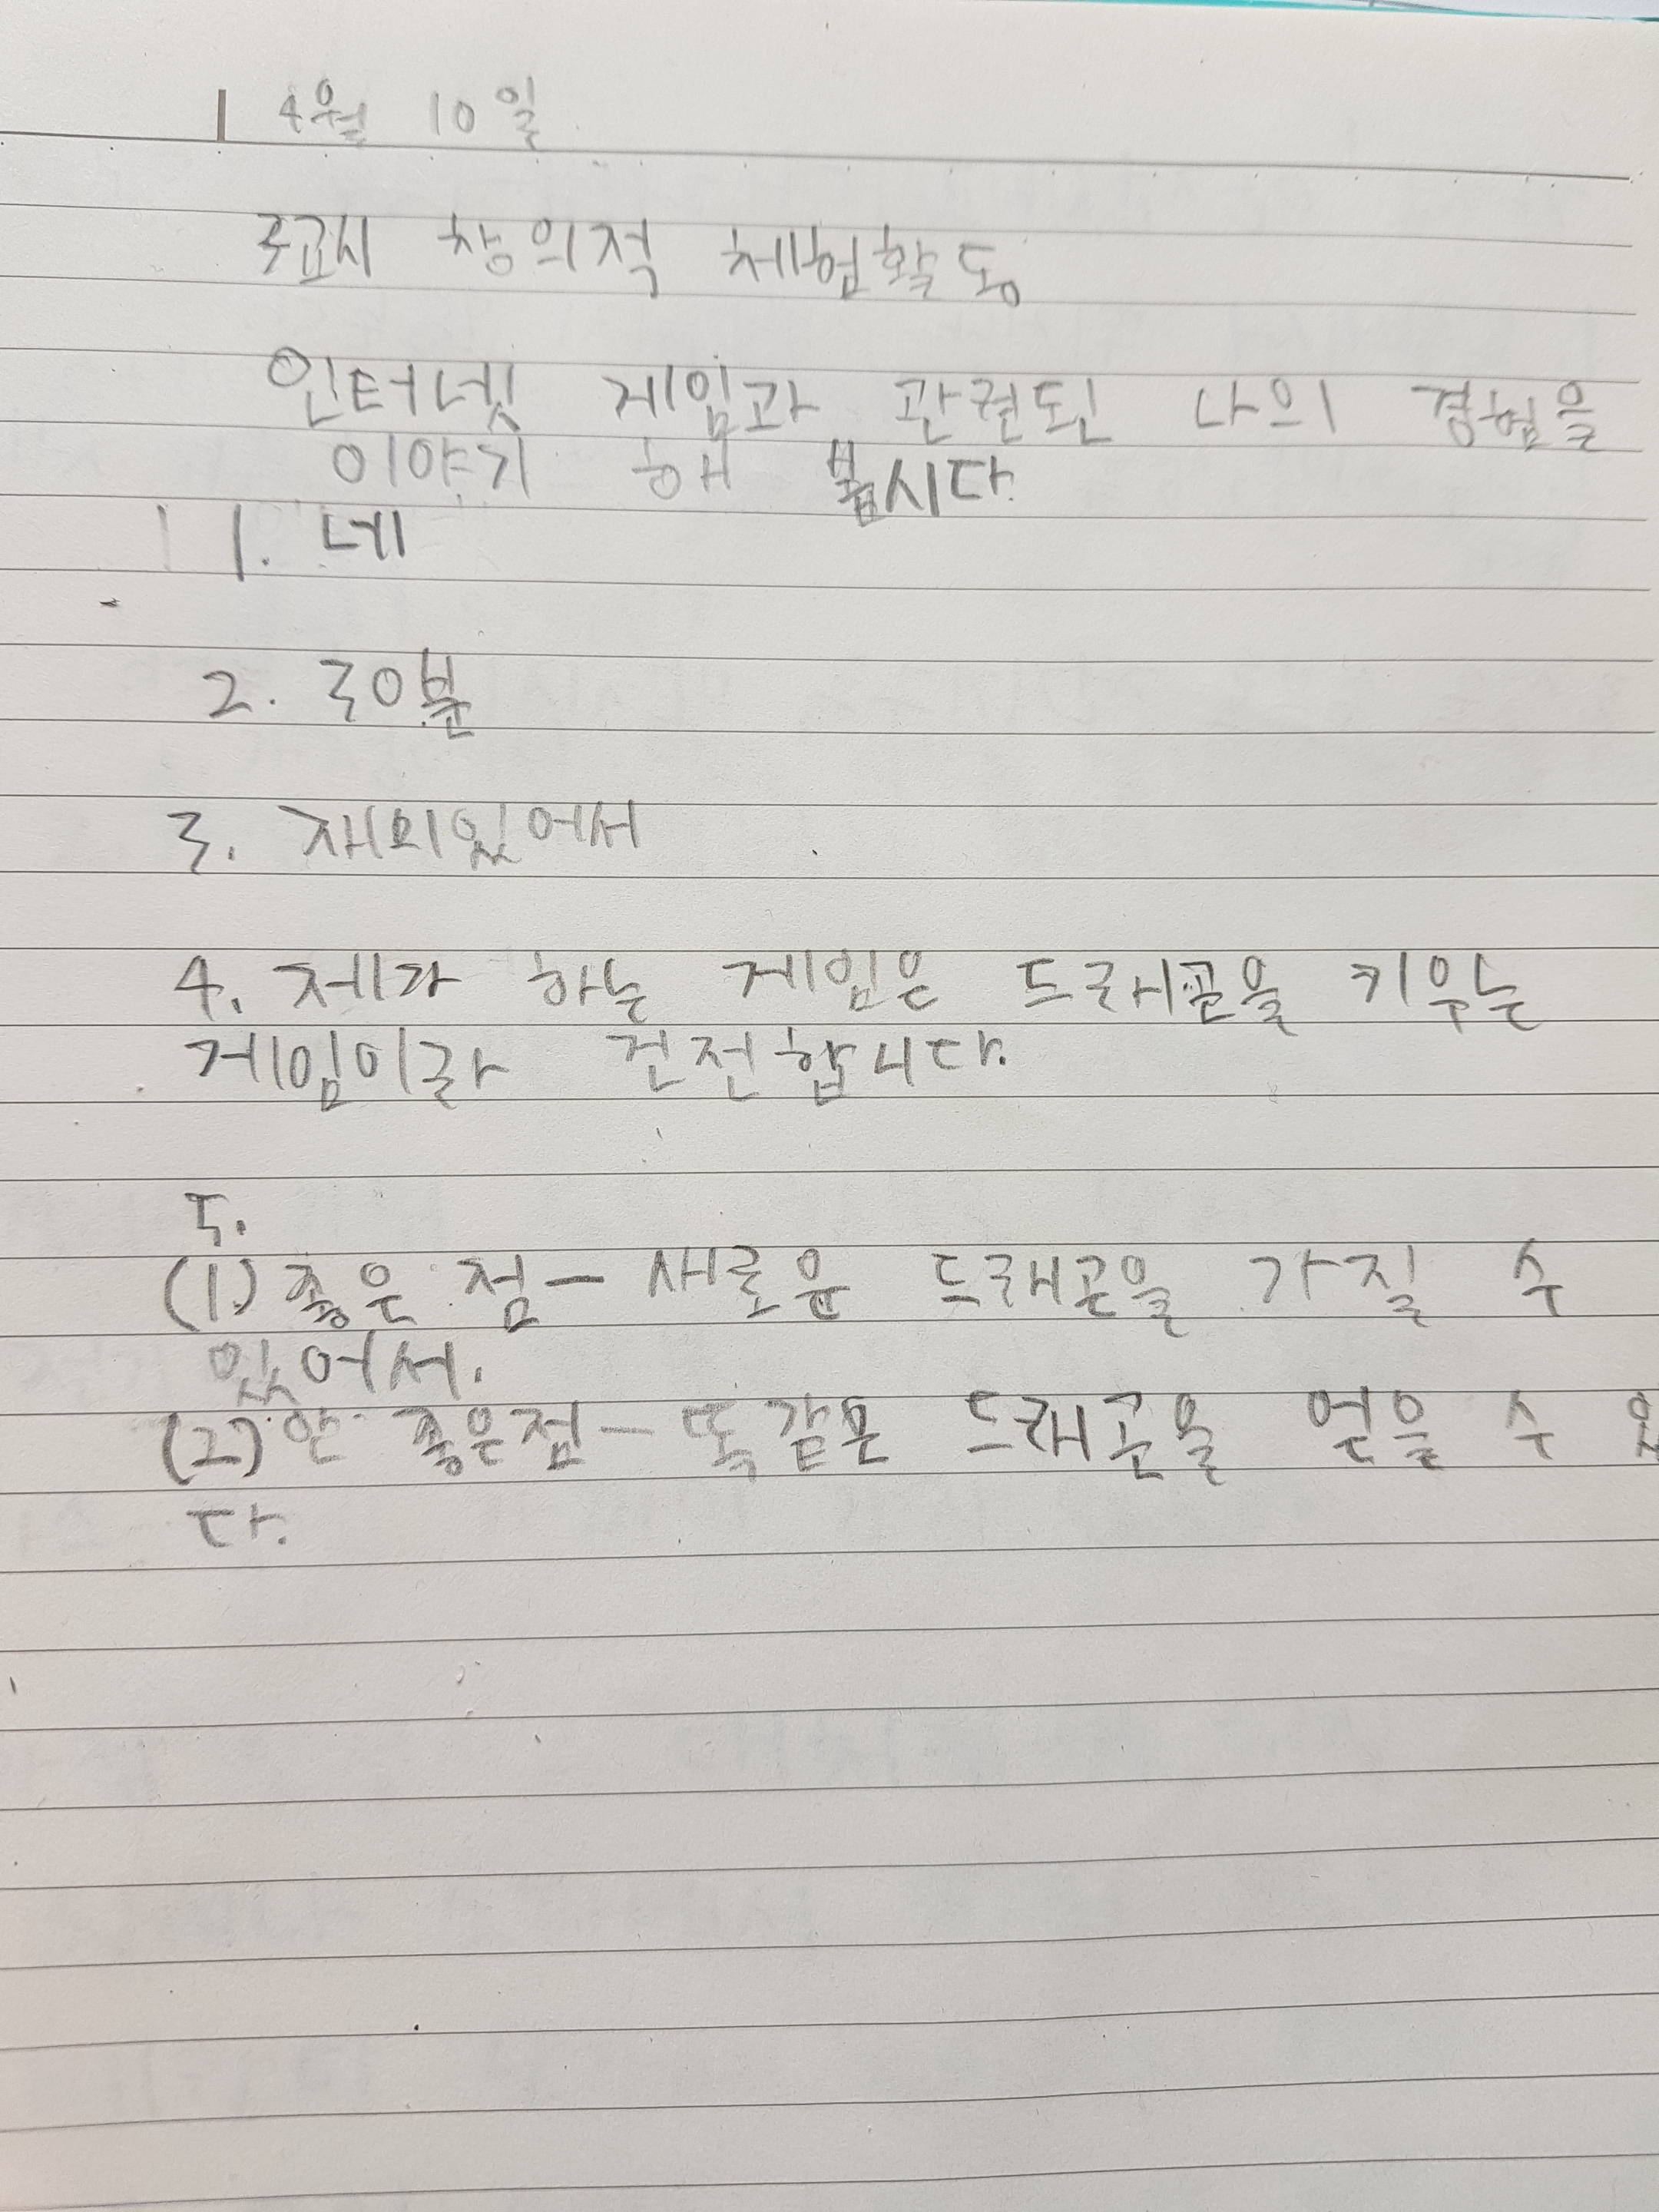 4월 10일
3교시 창의적 체험활동
인터넷 게임과 관련된 나의 경험을
이야기 해 봅시다.
1. 네
2. 30분
3. 재미있어서
4. 제가 하는 게임은 드래곤을 키우는
게임이라 건전합니다.
5.
(1) 좋은 점 - 새로운 드래곤을 가질 수
있어서.
(2) 안 좋은점 - 똑같은 드래곤을 얻을 수 있
다.